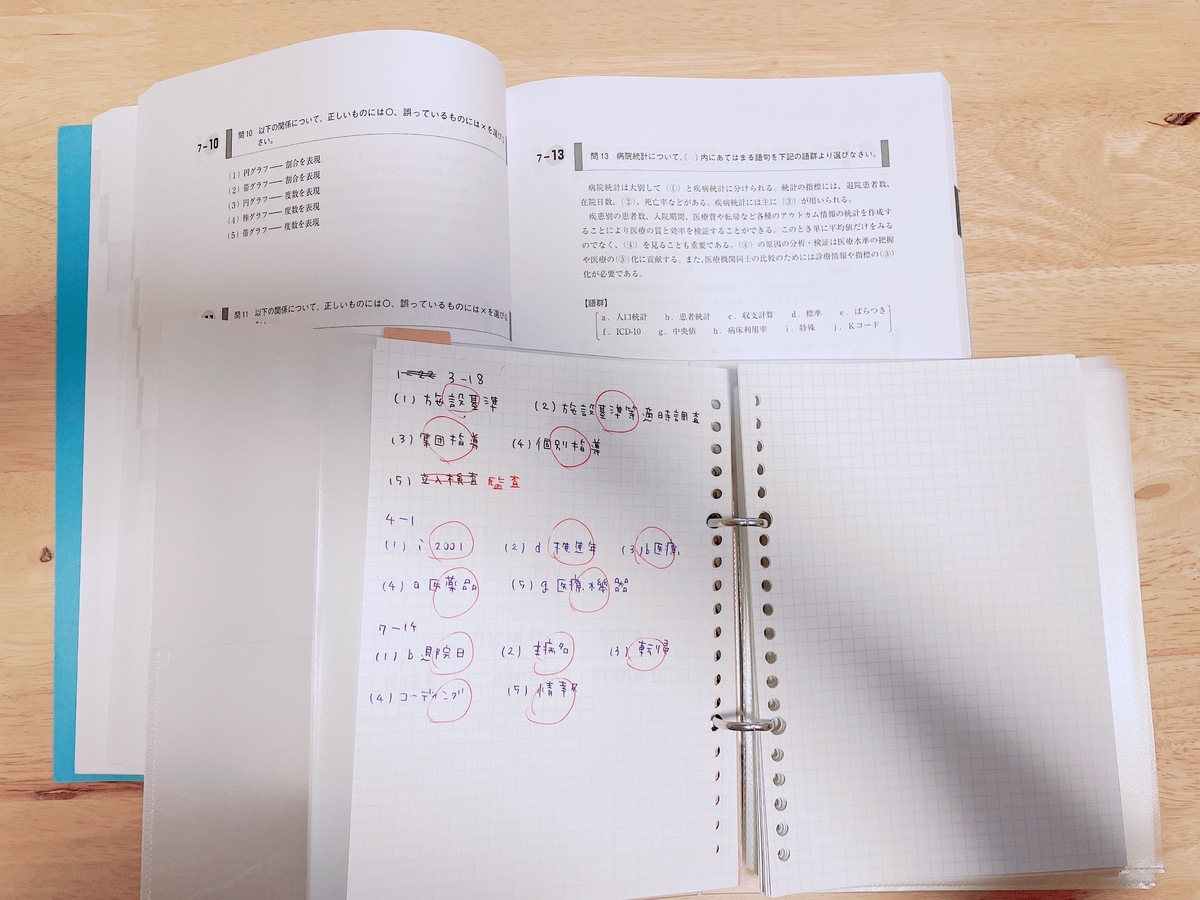 7-10 問10 以下の関係について、正しいものには○、誤っているものには×を選びな
さい。
(1) 円グラフ――割合を表現
(2) 帯グラフ――割合を表現
(3) 円グラフ――度数を表現
(4) 棒グラフ――度数を表現
(5) 帯グラフ――度数を表現
問11 以下の関係について、正しいものには○、誤っているものには×を選びな
7-13 問13 病院統計について、( )内にあてはまる語句を下記の語群より選びなさい。
病院統計は大別して(①)と疾病統計に分けられる。統計の指標には、退院患者数、
在院日数、(②)、死亡率などがある。疾病統計には主に(③)が用いられる。
疾患別の患者数、入院期間、医療費や転帰など各種のアウトカム情報の統計を作成す
ることにより医療の質と効率を検証することができる。このとき単に平均値だけをみる
のでなく、(④)を見ることも重要である。(④)の原因の分析・検証は医療水準の把握
や医療の(⑤)化に貢献する。また、医療機関同士の比較のためには診療情報や指標の(⑤)
化が必要である。
【語群】
a. 人口統計 b. 患者統計 c. 収支計算 d. 標準 e. ばらつき
f. ICD-10 g. 中央値 h. 病床利用率 i. 特殊 j. Kコード
3-18
(1) 施設基準 (2) 施設基準等適時調査
(3) 集団指導 (4) 個別指導
(5) 立入検査 監査
4-1
(1) i 2001 (2) d 権 (3) b 医療
(4) a 医薬品 (5) g 医療機器
7-14
(1) b 退院日 (2) 主病名 (3) 転帰
(4) コーディング (5) 情報